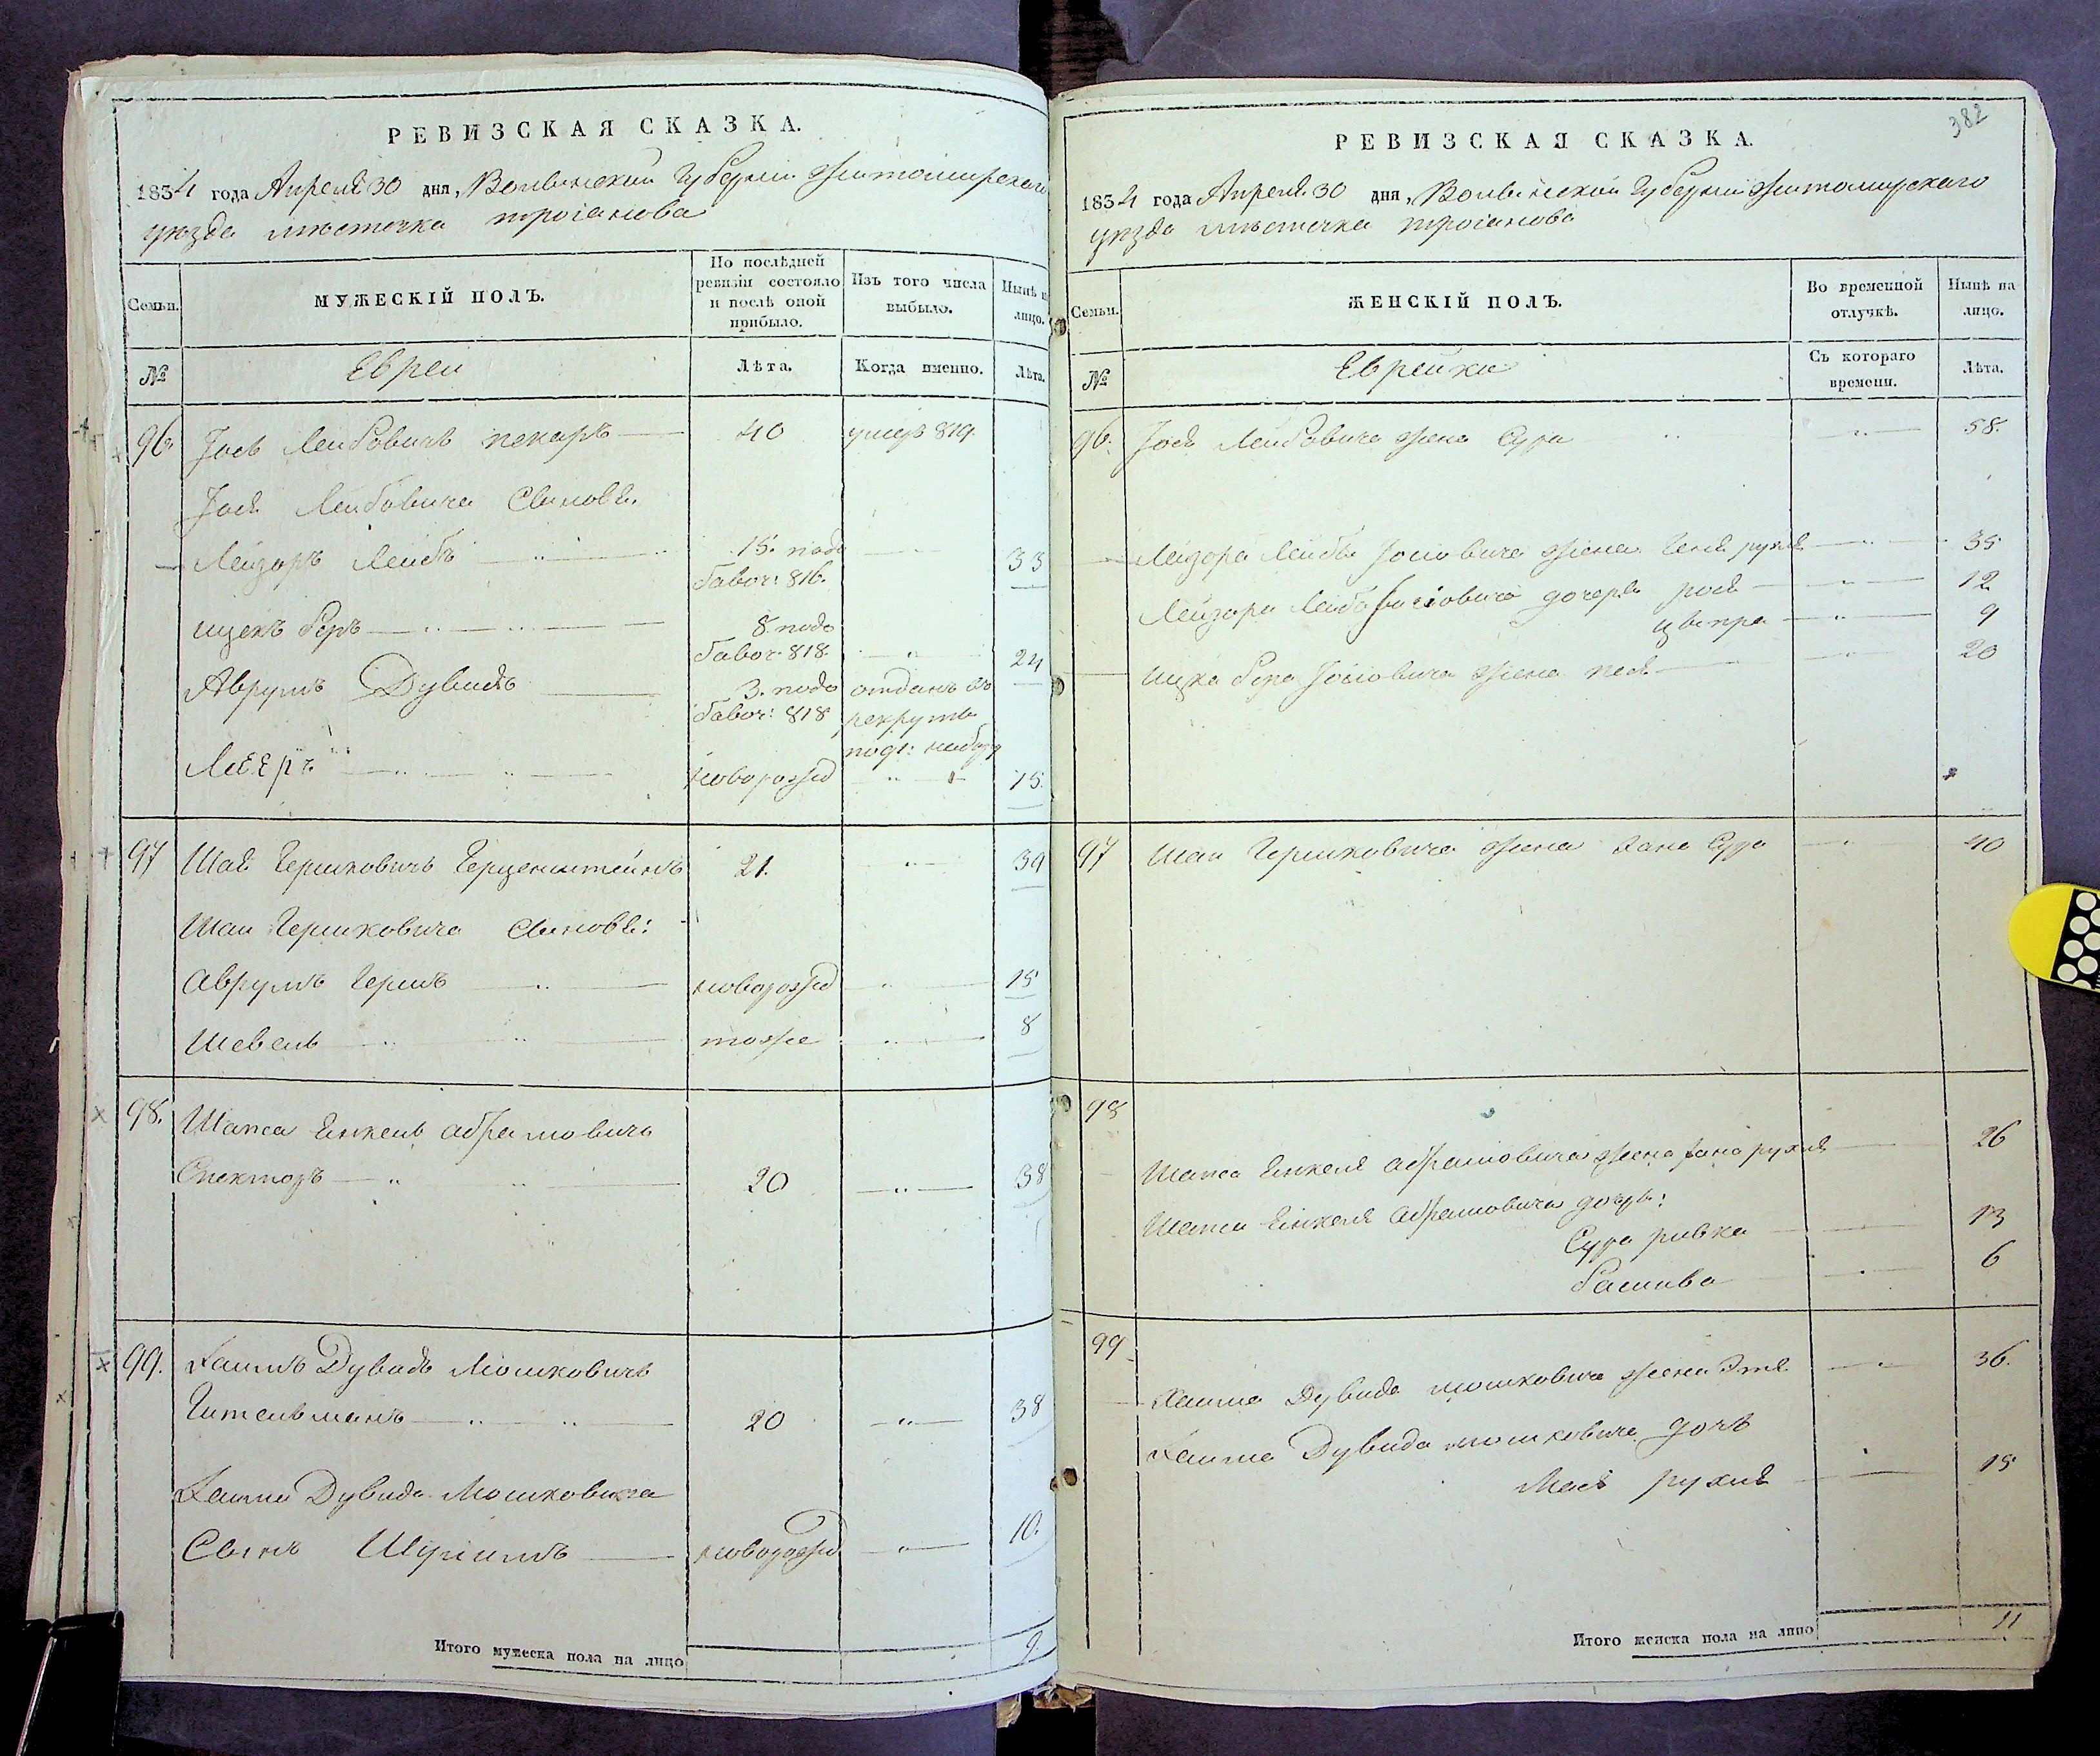 РЕВИЗСКАЯ СКАЗКА.
1834 года Апреля 30 дня, Волынской Губернии Житомирскаго
уезда местечка трогянова
Семьи.
МУЖЕСКІЙ ПОЛЪ.
По послѣдней ревизіи состояло и послѣ оной прибыло.
Изъ того числа выбыло.
Нынѣ на лицо.
№
Евреи
Лѣта.
Когда именно.
Лѣта.
96. Іось Лейбовичъ пекаръ 40 умеръ 819.
Іося Лейбовича Сыновья.
Лейзоръ Лейбъ 15. подо 33
бавоч: 816.
ицекъ беръ 8. подо
бавоч. 818. 24
Аврумъ Дувидъ 3. подо отданъ въ
бавоч: 818 рекруты
Мееръ новорожд 15.
97 Шая Гершковичъ Герценштейнъ 21. 39
Шаи Гершковича Сыновья:
Аврумъ Гершъ новорожд 15
Шевель тоже 8
98. Шапса Янкель абрамовичъ
Спекторъ 20 38
99. Хаимъ Дувидъ Мошковичъ
Гительманъ 20 38
Хаима Дувида Мошковича
Сынъ Шулимъ новорожд 10.
Итого мужеска пола на лицо 9.
382
РЕВИЗСКАЯ СКАЗКА.
1834 года Апреля 30 дня, Волынской Губернии Житомирскаго
уезда местечка трогянова
Семьи.
ЖЕНСКІЙ ПОЛЪ.
Во временной отлучкѣ.
Нынѣ на лицо.
№
Еврейки
Съ котораго времени.
Лѣта.
96. Іося Лейбовича жена Сура 58.
Лейзора Лейбы Іосиовича жена Геня рухля 35
Лейзора Лейбы Іосиовича дочеря рося 12
ципра 9
ицка бера Іосиовича жена песя 20
97 Шаи Гершковича жена хана Сура 40
98
Шапса Янкеля абрамовича жена хана рухля 26
Шапса Янкеля абрамовича дочеры:
Сура ривка 13
басшива 6
99
Хаима Дувида мошковича жена Этя 36.
Хаима Дувида мошковича дочь
Мася рухля 15
Итого женска пола на лицо 11